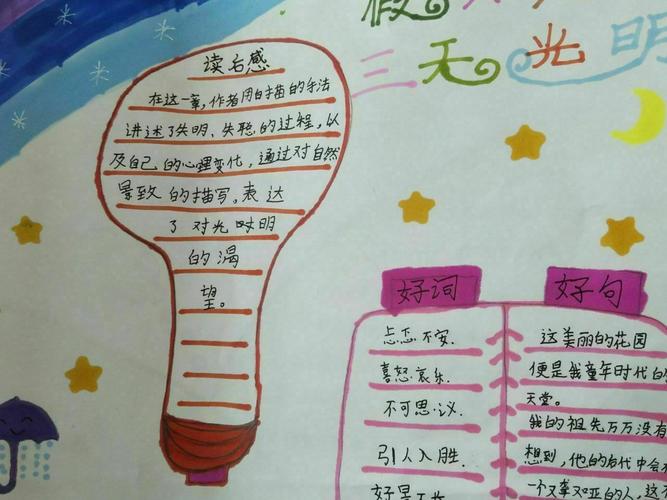 假
三天光明
读后感
在这一章,作者用白描的手法
讲述了失明、失聪的过程,以
及自己的心理变化,通过对自然
景致的描写。表达
了对光明
的渴
望。
好词
忐忑不安.
喜怒哀乐.
不可思议.
引人入胜.
好句
这美丽的花园
便是我童年时代的
天堂。
我的祖先万万没有
想到,他的后代中会有
一个又聋又哑的人,这